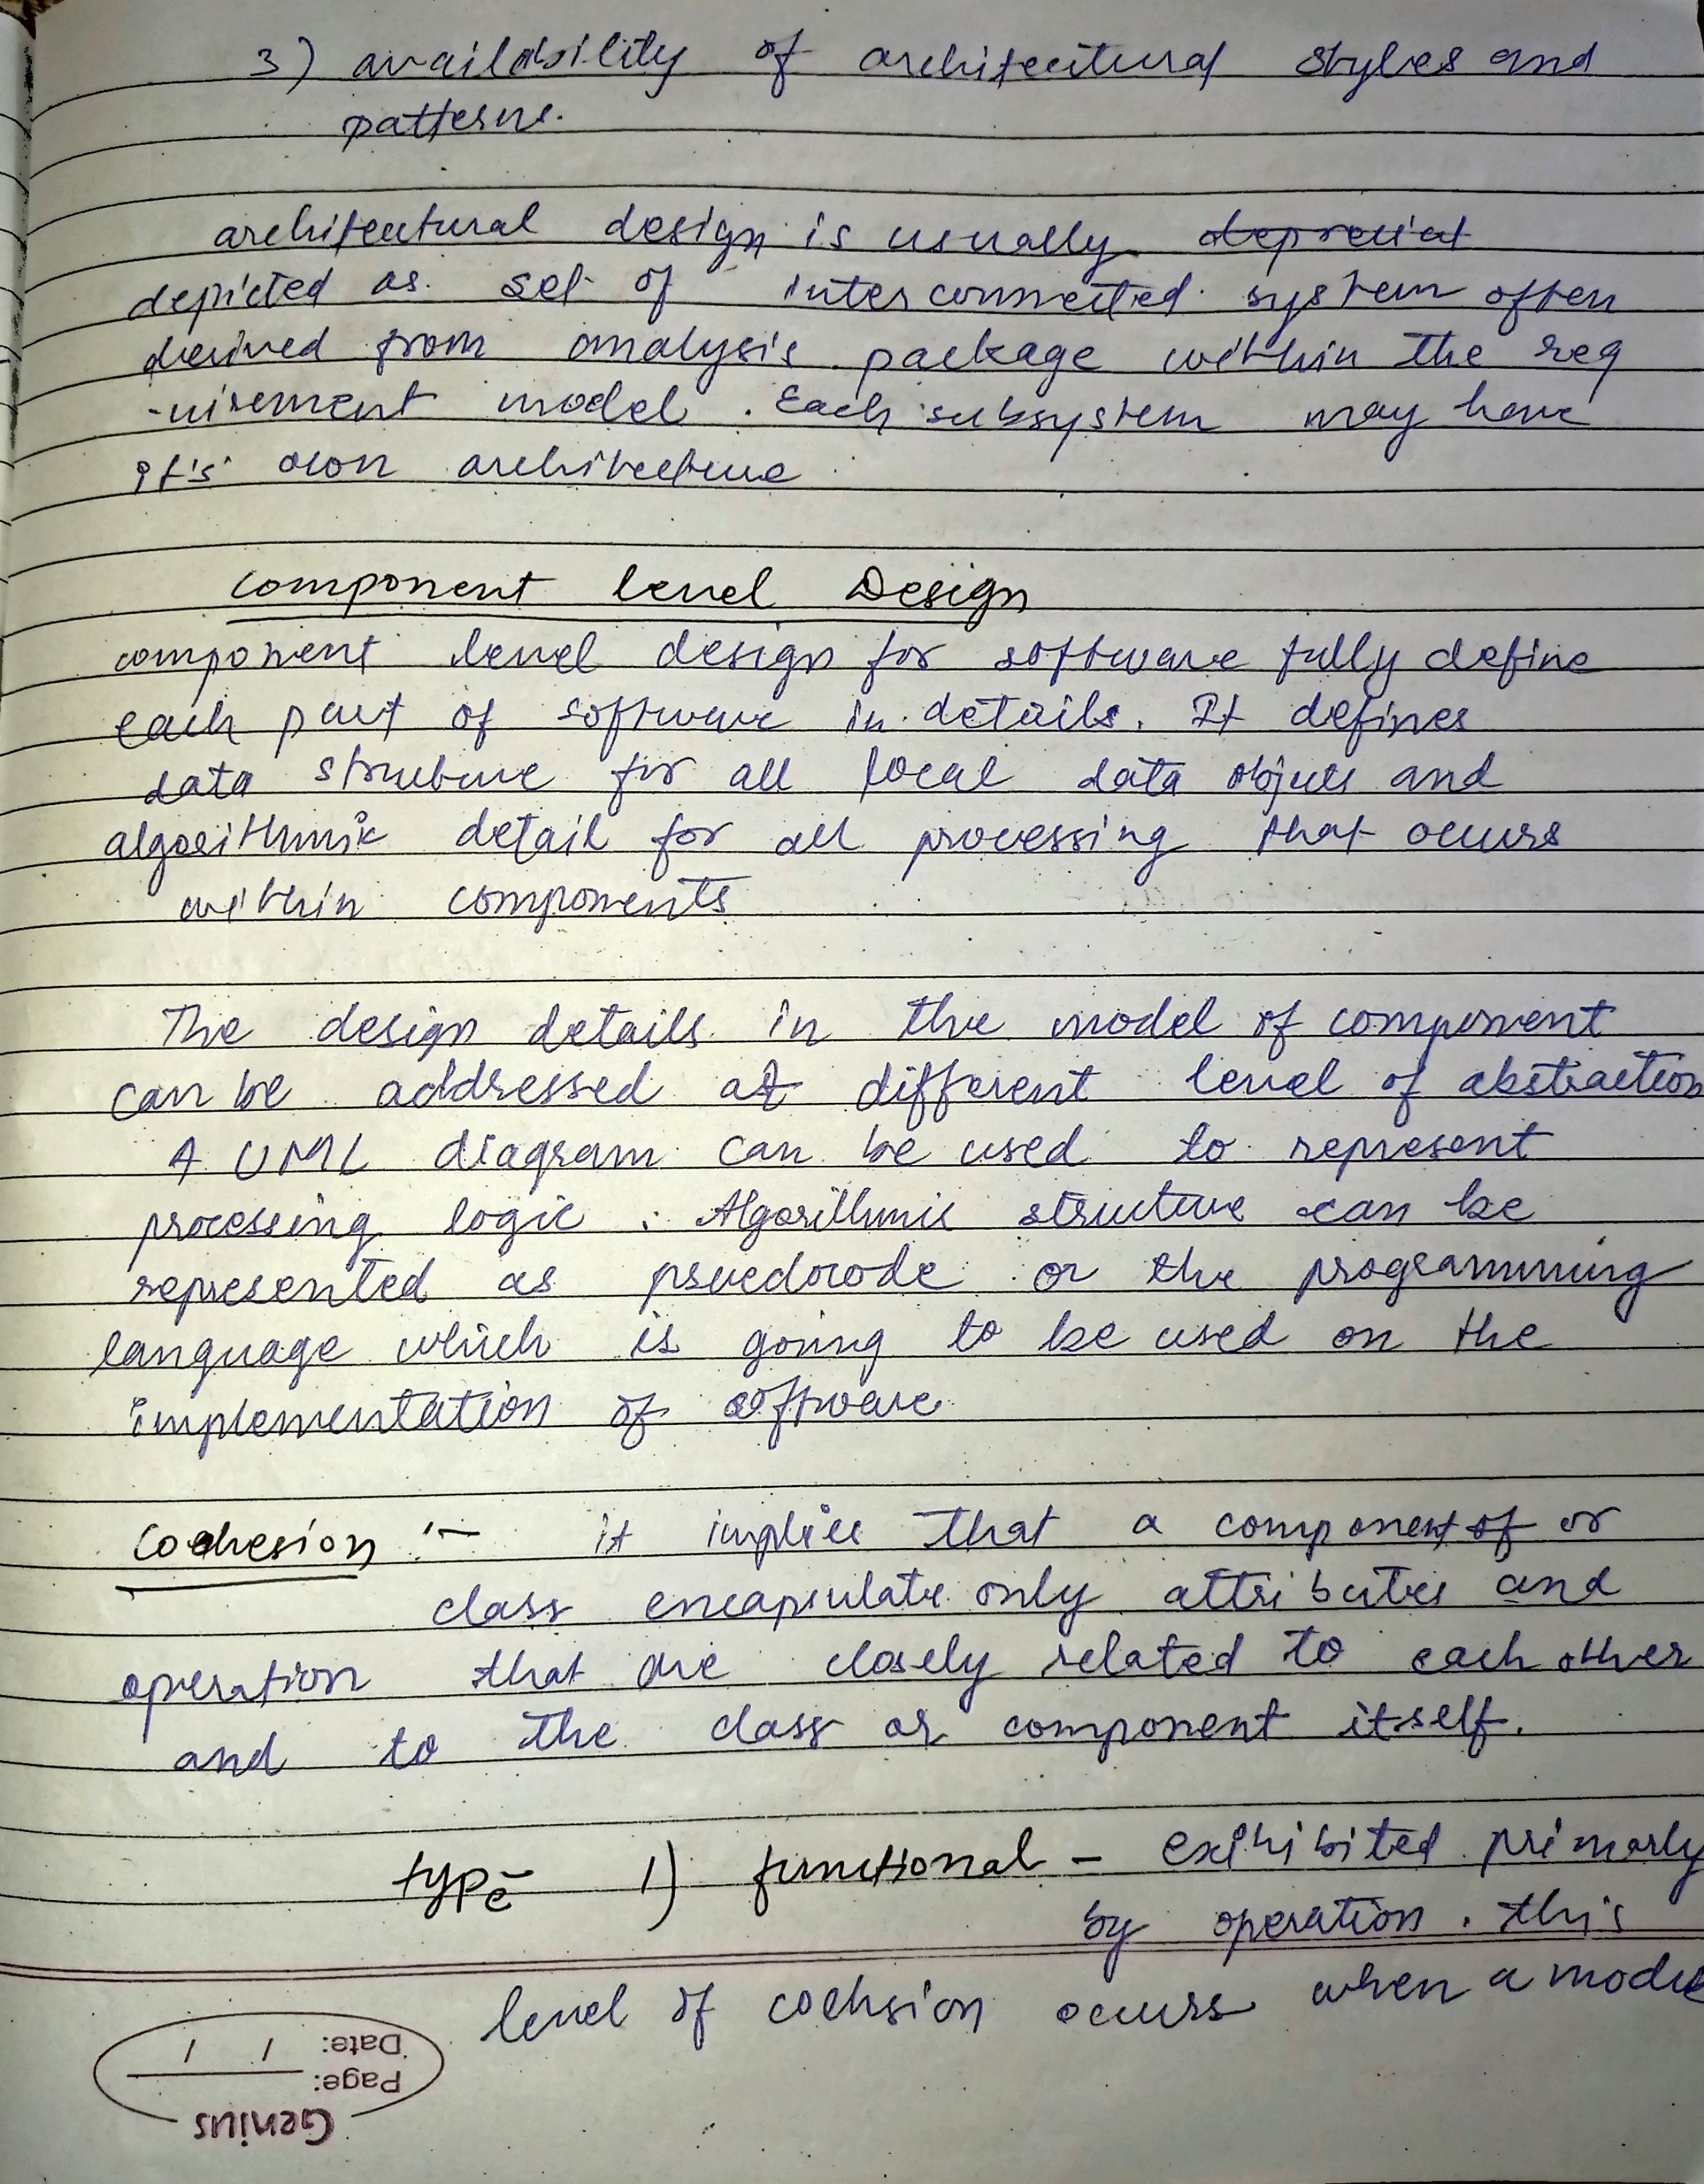 3) availability of architectural styles and
patterns.
architectural design is usually depreciat
depicted as set of interconnected system often
derived from analysis package within the req
-uirement model. Each subsystem may have
it's own architecture
component level Design
component level design for software fully define
each part of software in details. It defines
data structure for all local data objects and
algorithmic detail for all processing that occurs
within components
The design details in the model of component
can be addressed at different level of abstraction
A UML diagram can be used to represent
processing logic. Algorithmic structure can be
represented as psuedocode or the programming
language which is going to be used on the
implementation of software
Coehesion :- it implies that a component of or
class encapsulate only attributes and
operation that are closely related to each other
and to the class or component itself.
type 1) functional - exihibited primarly
by operation. this
level of coehsion occurs when a module
Date: / /
Page:
Genius